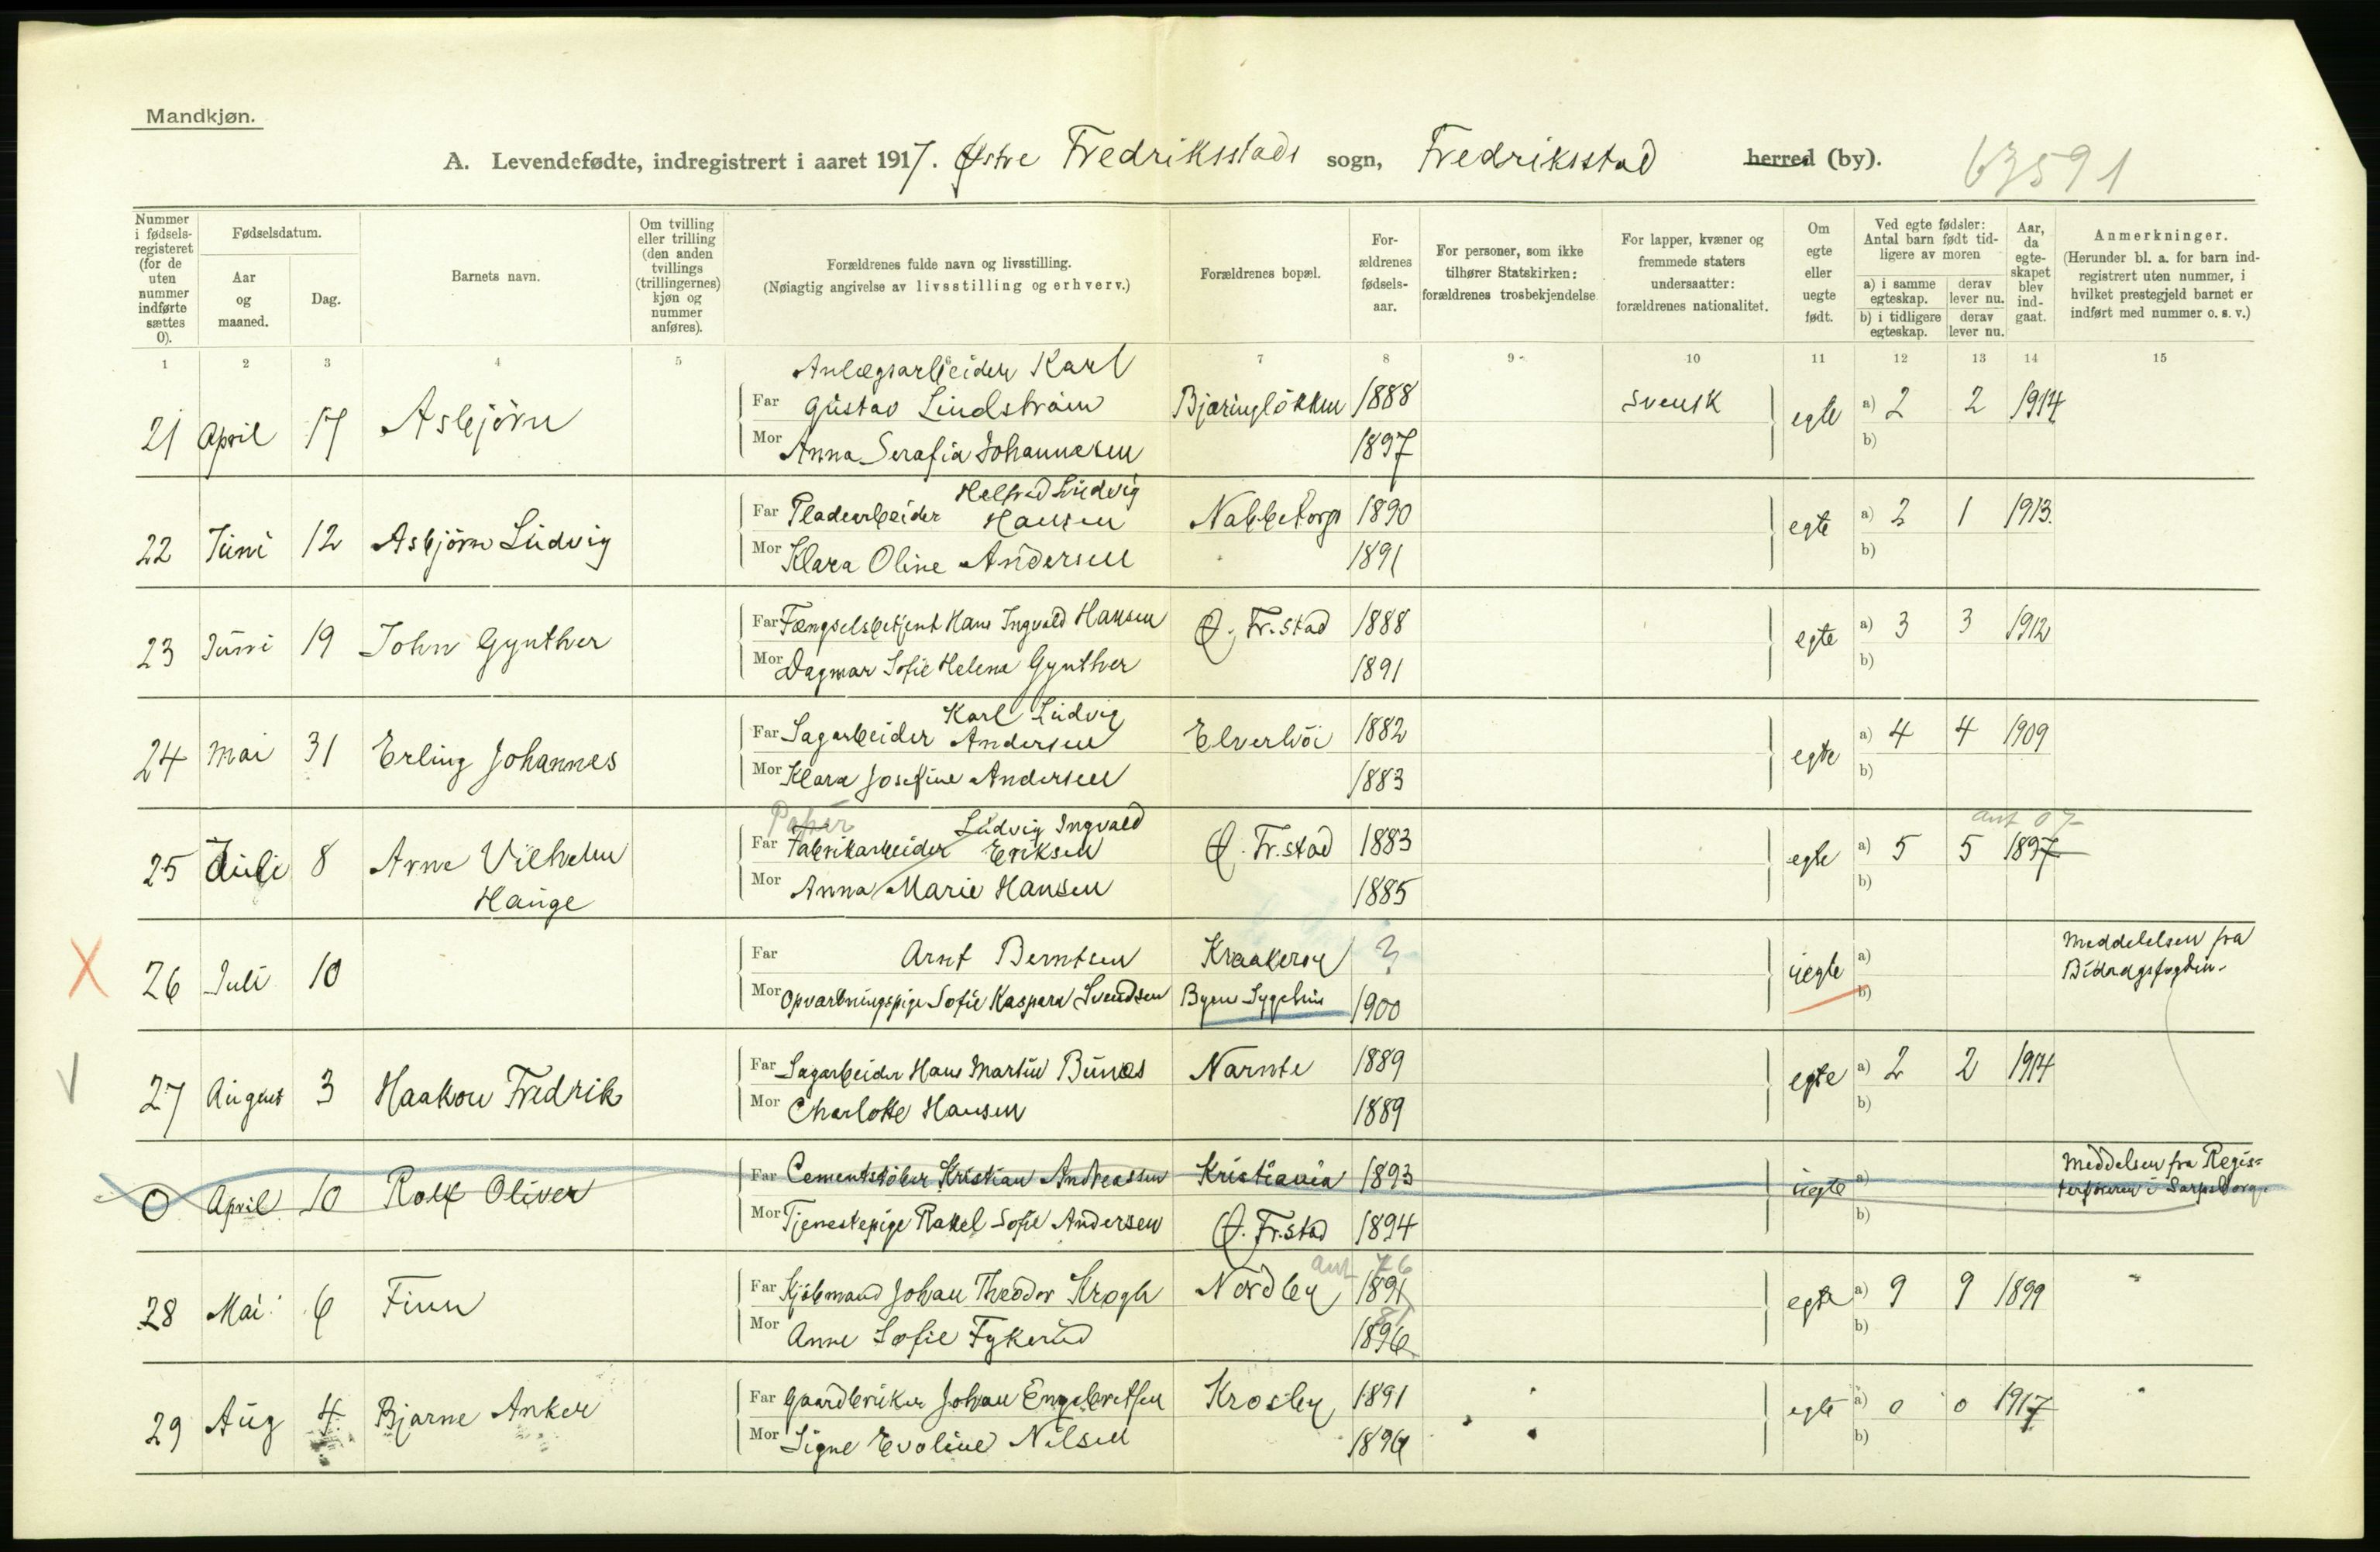 Mandkjøn.
A. Levendefødte, indregistrert i aaret 1917. Østre Fredriksstads sogn, Fredriksstad herred (by). 63591
Nummer i fødsels-registeret (for de uten nummer indførte sættes 0).
Fødselsdatum.
Aar og maaned.
Dag.
Barnets navn.
Om tvilling eller trilling (den anden tvillings (trillingernes) kjøn og nummer anføres).
Forældrenes fulde navn og livsstilling.
(Nøiagtig angivelse av livsstilling og erhverv.)
Forældrenes bopæl.
For-ældrenes fødsels-aar.
For personer, som ikke tilhører Statskirken: forældrenes trosbekjendelse
For lapper, kvæner og fremmede staters undersaatter: forældrenes nationalitet.
Om egte eller uegte født.
Ved egte fødsler: Antal barn født tid-ligere av moren
a) i samme egteskap.
derav lever nu.
b) i tidligere egteskap.
derav lever nu.
Aar, da egte-skapet blev ind-gaat.
Anmerkninger.
(Herunder bl. a. for barn ind-registrert uten nummer, i hvilket prestegjeld barnet er indført med nummer o. s. v.)
1 2 3 4 5 6 7 8 9 10 11 12 13 14 15
Anlægsarbeider Karl
Far Gustav Lindstrøm Bjæringløkken 1888 svensk
21 April 17 Asbjørn egte a) 2 2 1914
Mor Anna Serafia Johannesen 1897 b)
Helfred Ludvig
Far Pladearbeider Hansen Nabbetorp 1890
22 Juni 12 Asbjørn Ludvig egte a) 2 1 1913.
Mor Klara Oline Andersen 1891 b)
Far Fængselsbetjent Hans Ingvald Hansen Ø. Fr.stad 1888
23 Juni 19 John Gynther egte a) 3 3 1912
Mor Dagmar Sofie Helene Gynther 1891 b)
Karl Ludvig
Far Sagarbeider Andersen Elverhöi 1882
24 Mai 31 Erling Johannes egte a) 4 4 1909
Mor Klara Josefine Andersen 1883 b)
Papir Ludvig Ingvald ant 07
Far Fabrikarbeider Eriksen Ø. Fr.stad 1883
25 Juli 8 Arne Vilhelm egte a) 5 5 1897
Hauge
Mor Anna Marie Hansen 1885 b)
Far Arnt Berntsen Kraakerøy ?
X 26 Juli 10 uegte a) Meddelelsen fra
Mor Opvartningspige Sofie Kaspara Svendsen Byens Sygehus 1900 b) Bidragsfogden.
Far Sagarbeider Hans Martin Bunæs Narnte 1889
27 August 3 Haakon Fredrik egte a) 2 2 1914
Mor Charlotte Hansen 1889 b)
Far Cementstøber Kristian Andreassen Kristiania 1893
0 April 10 Rolf Oliver uegte a) Meddelsen fra Regis-
Mor Tjenestepige Rakel Sofie Andersen Ø. Fr.stad 1894 b) terføreren i Sarpsborg
ant 76
Far Kjøbmand Johan Theodor Krogh Nordby 1891
28 Mai 6 Finn egte a) 9 9 1899 "
81
Mor Anne Sofie Fykerud 1896 b)
Far Gaardbruker Johan Engebretsen Krosby 1891
29 Aug 4 Bjarne Anker egte a) 0 0 1917 "
Mor Signe Evoline Nilsen 1896 b)